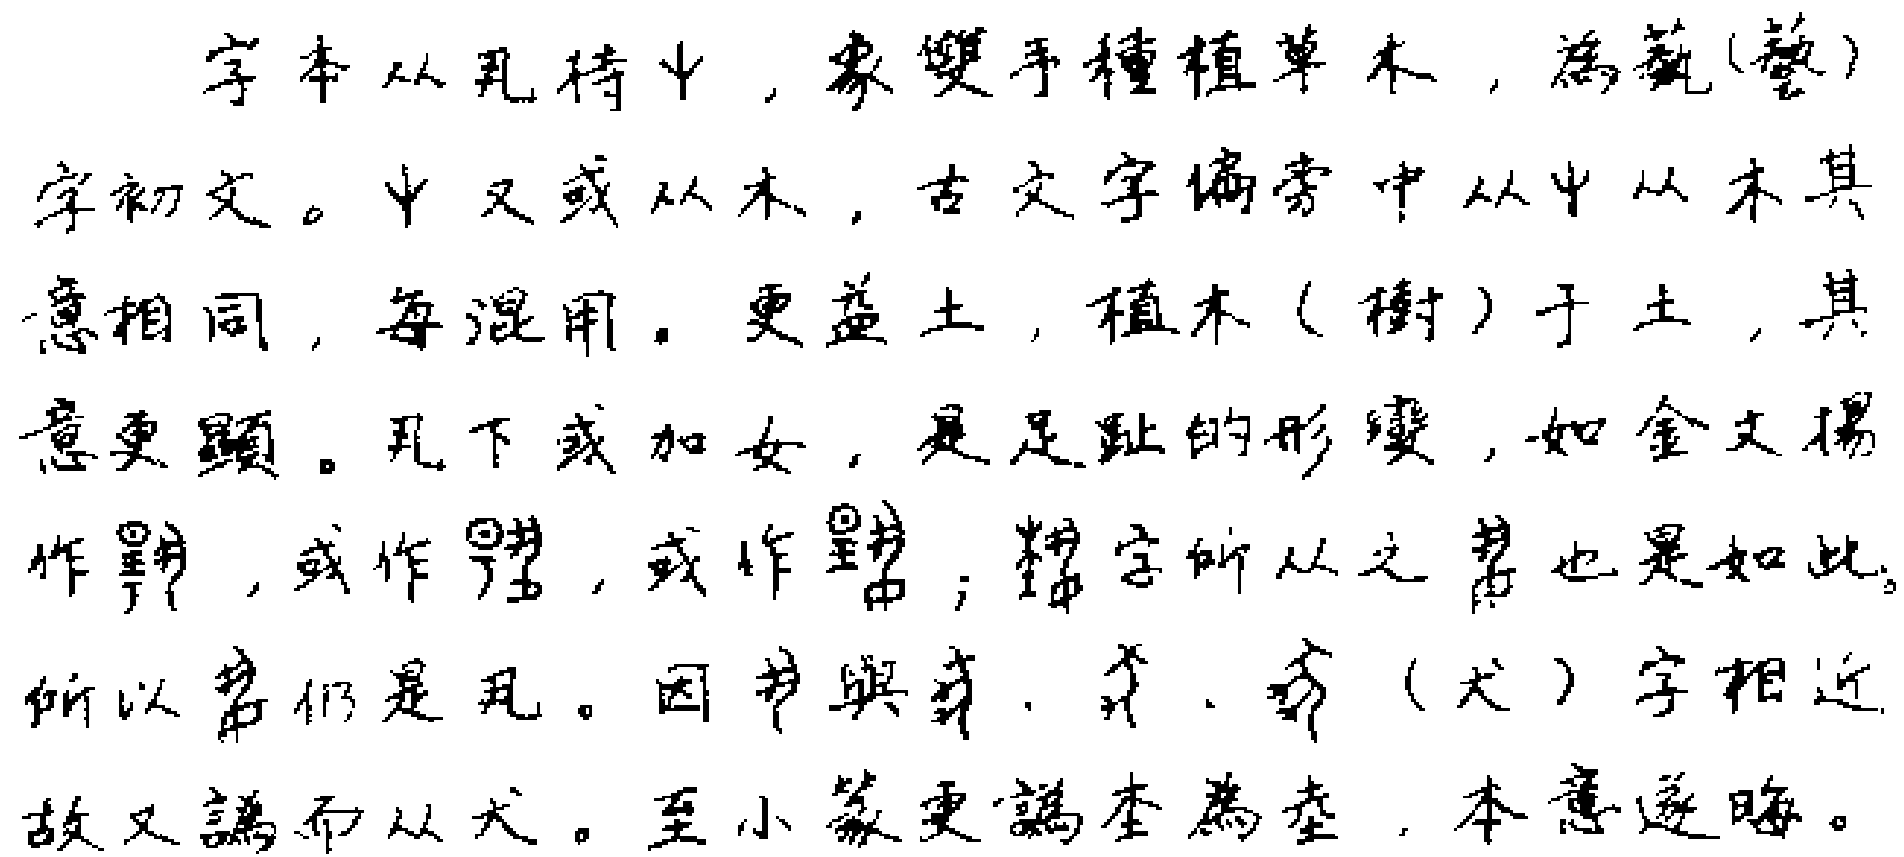 字本从丮持屮，象雙手種植草木，為蓺（藝）
字初文。屮又或从木，古文字偏旁中从屮从木其
意相同，每混用。更益土，植木（樹）于土，其
意更顯。丮下或加女，是足趾的形變，如金文揚
作，或作，或作；字所从之也是如此。
所以仍是丮。因與、、（犬）字相近
故又譌而从犬。至小篆更譌杢為坴，本意遂晦。